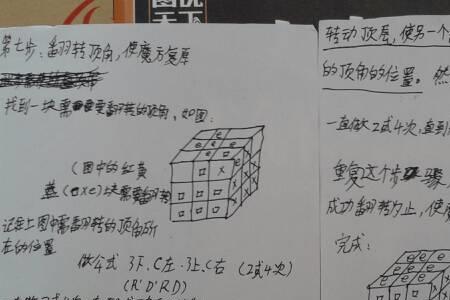 第七步:翻转顶角,使魔方复原
找到一块需要翻转的顶角,如图:
(图中的红黄
蓝(exe)块需要翻转
记住上图中需翻转的顶角所
在的位置
做公式 3下、C左、3上、C右 (2或4次)
(R'D'RD)
转动顶层,使另一个
的顶角的位置。然
一直做2或4次,直到
重复这个步骤
成功翻转为止,使
完成: